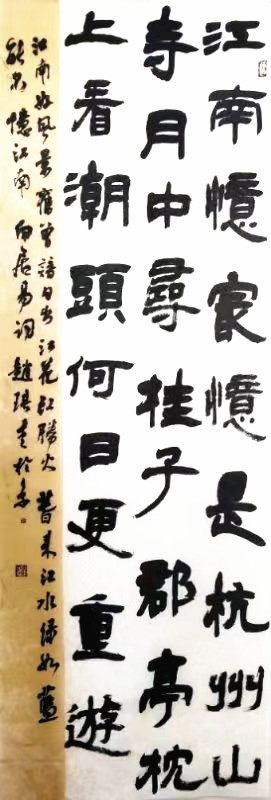 江南憶最憶是杭州山
寺月中尋桂子郡亭枕
上看潮頭何日更重遊
江南好風景舊曾諳日出江花紅勝火春來江水綠如藍
能不憶江南 白居易詞 趙